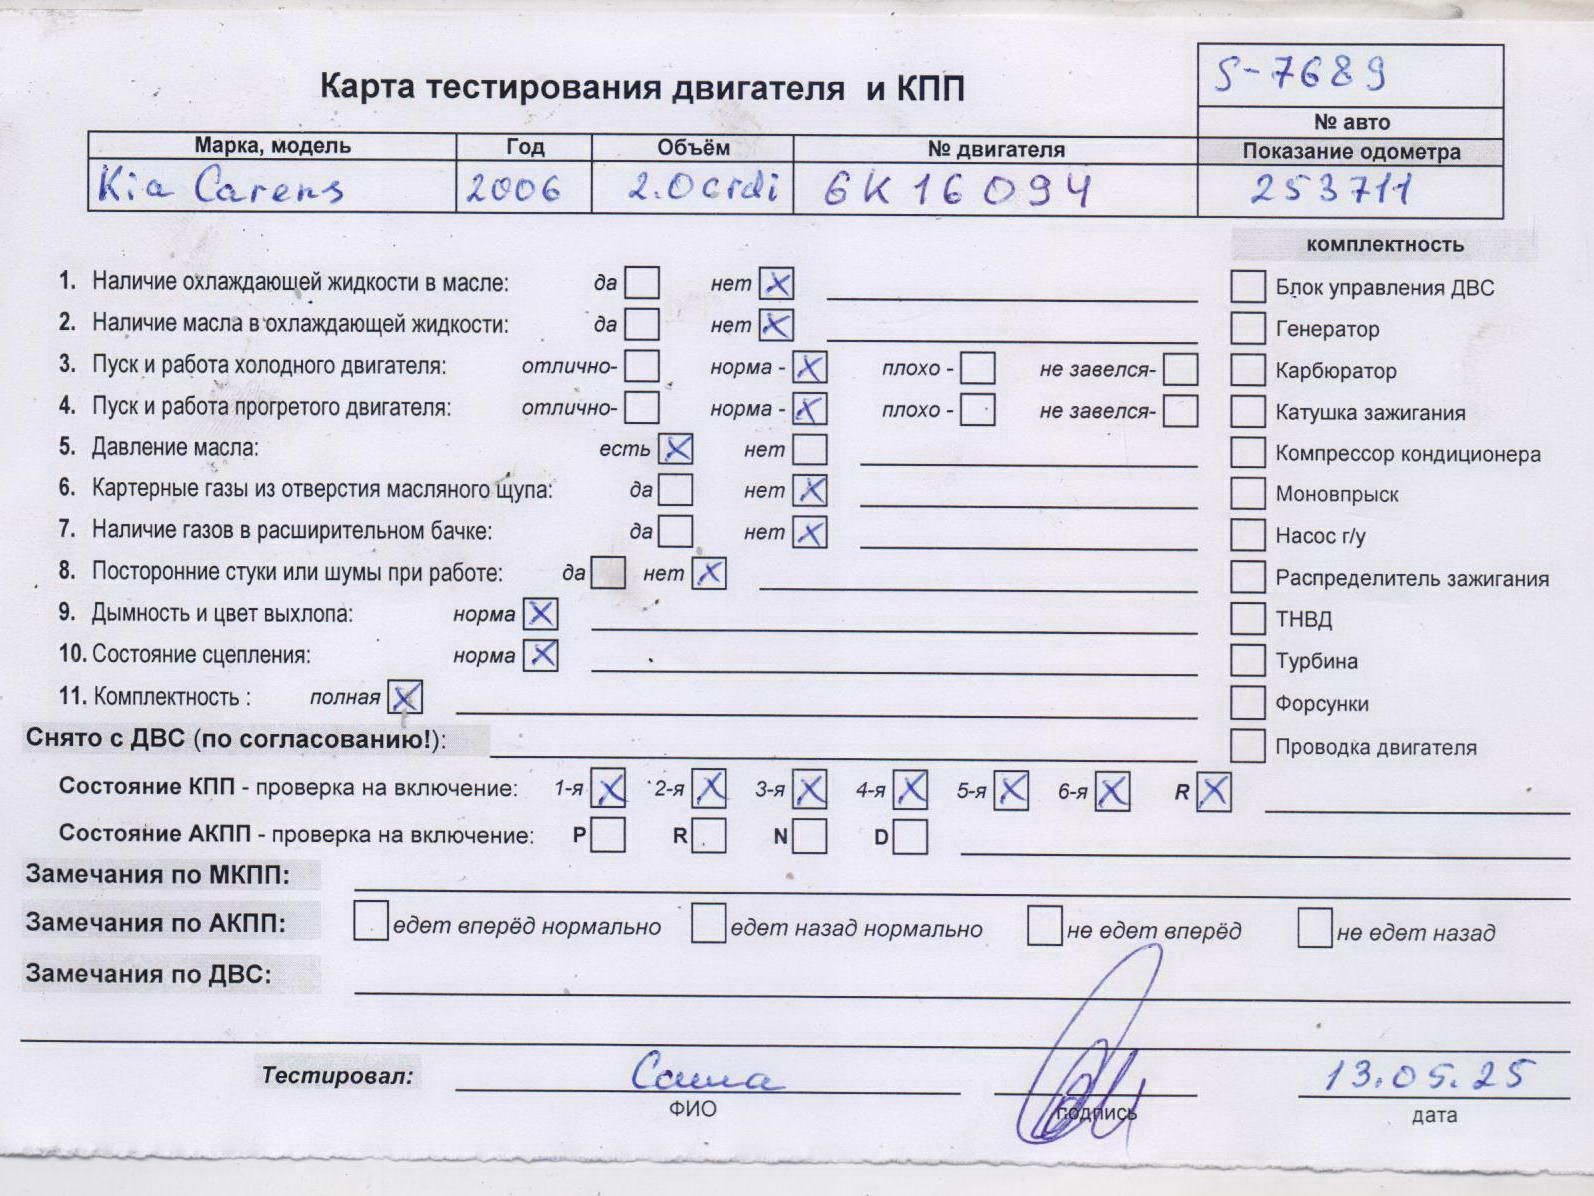 S-7689
Карта тестирования двигателя и КПП
№ авто
Марка, модель Год Объём № двигателя Показание одометра
Kia Carens 2006 2.0crdi 6K16094 253711
комплектность
1. Наличие охлаждающей жидкости в масле: да нет
Блок управления ДВС
2. Наличие масла в охлаждающей жидкости: да нет
Генератор
3. Пуск и работа холодного двигателя: отлично- норма - плохо - не завелся-
Карбюратор
4. Пуск и работа прогретого двигателя: отлично- норма - плохо - не завелся-
Катушка зажигания
5. Давление масла: есть нет
Компрессор кондиционера
6. Картерные газы из отверстия масляного щупа: да нет
Моновпрыск
7. Наличие газов в расширительном бачке: да нет
Насос г/у
8. Посторонние стуки или шумы при работе: да нет
Распределитель зажигания
9. Дымность и цвет выхлопа: норма
ТНВД
10. Состояние сцепления: норма
Турбина
11. Комплектность : полная
Форсунки
Снято с ДВС (по согласованию!):
Проводка двигателя
Состояние КПП - проверка на включение: 1-я 2-я 3-я 4-я 5-я 6-я R
Состояние АКПП - проверка на включение: P R N D
Замечания по МКПП:
Замечания по АКПП: едет вперёд нормально едет назад нормально не едет вперёд не едет назад
Замечания по ДВС:
Тестировал: Саша 13.05.25
ФИО подпись дата